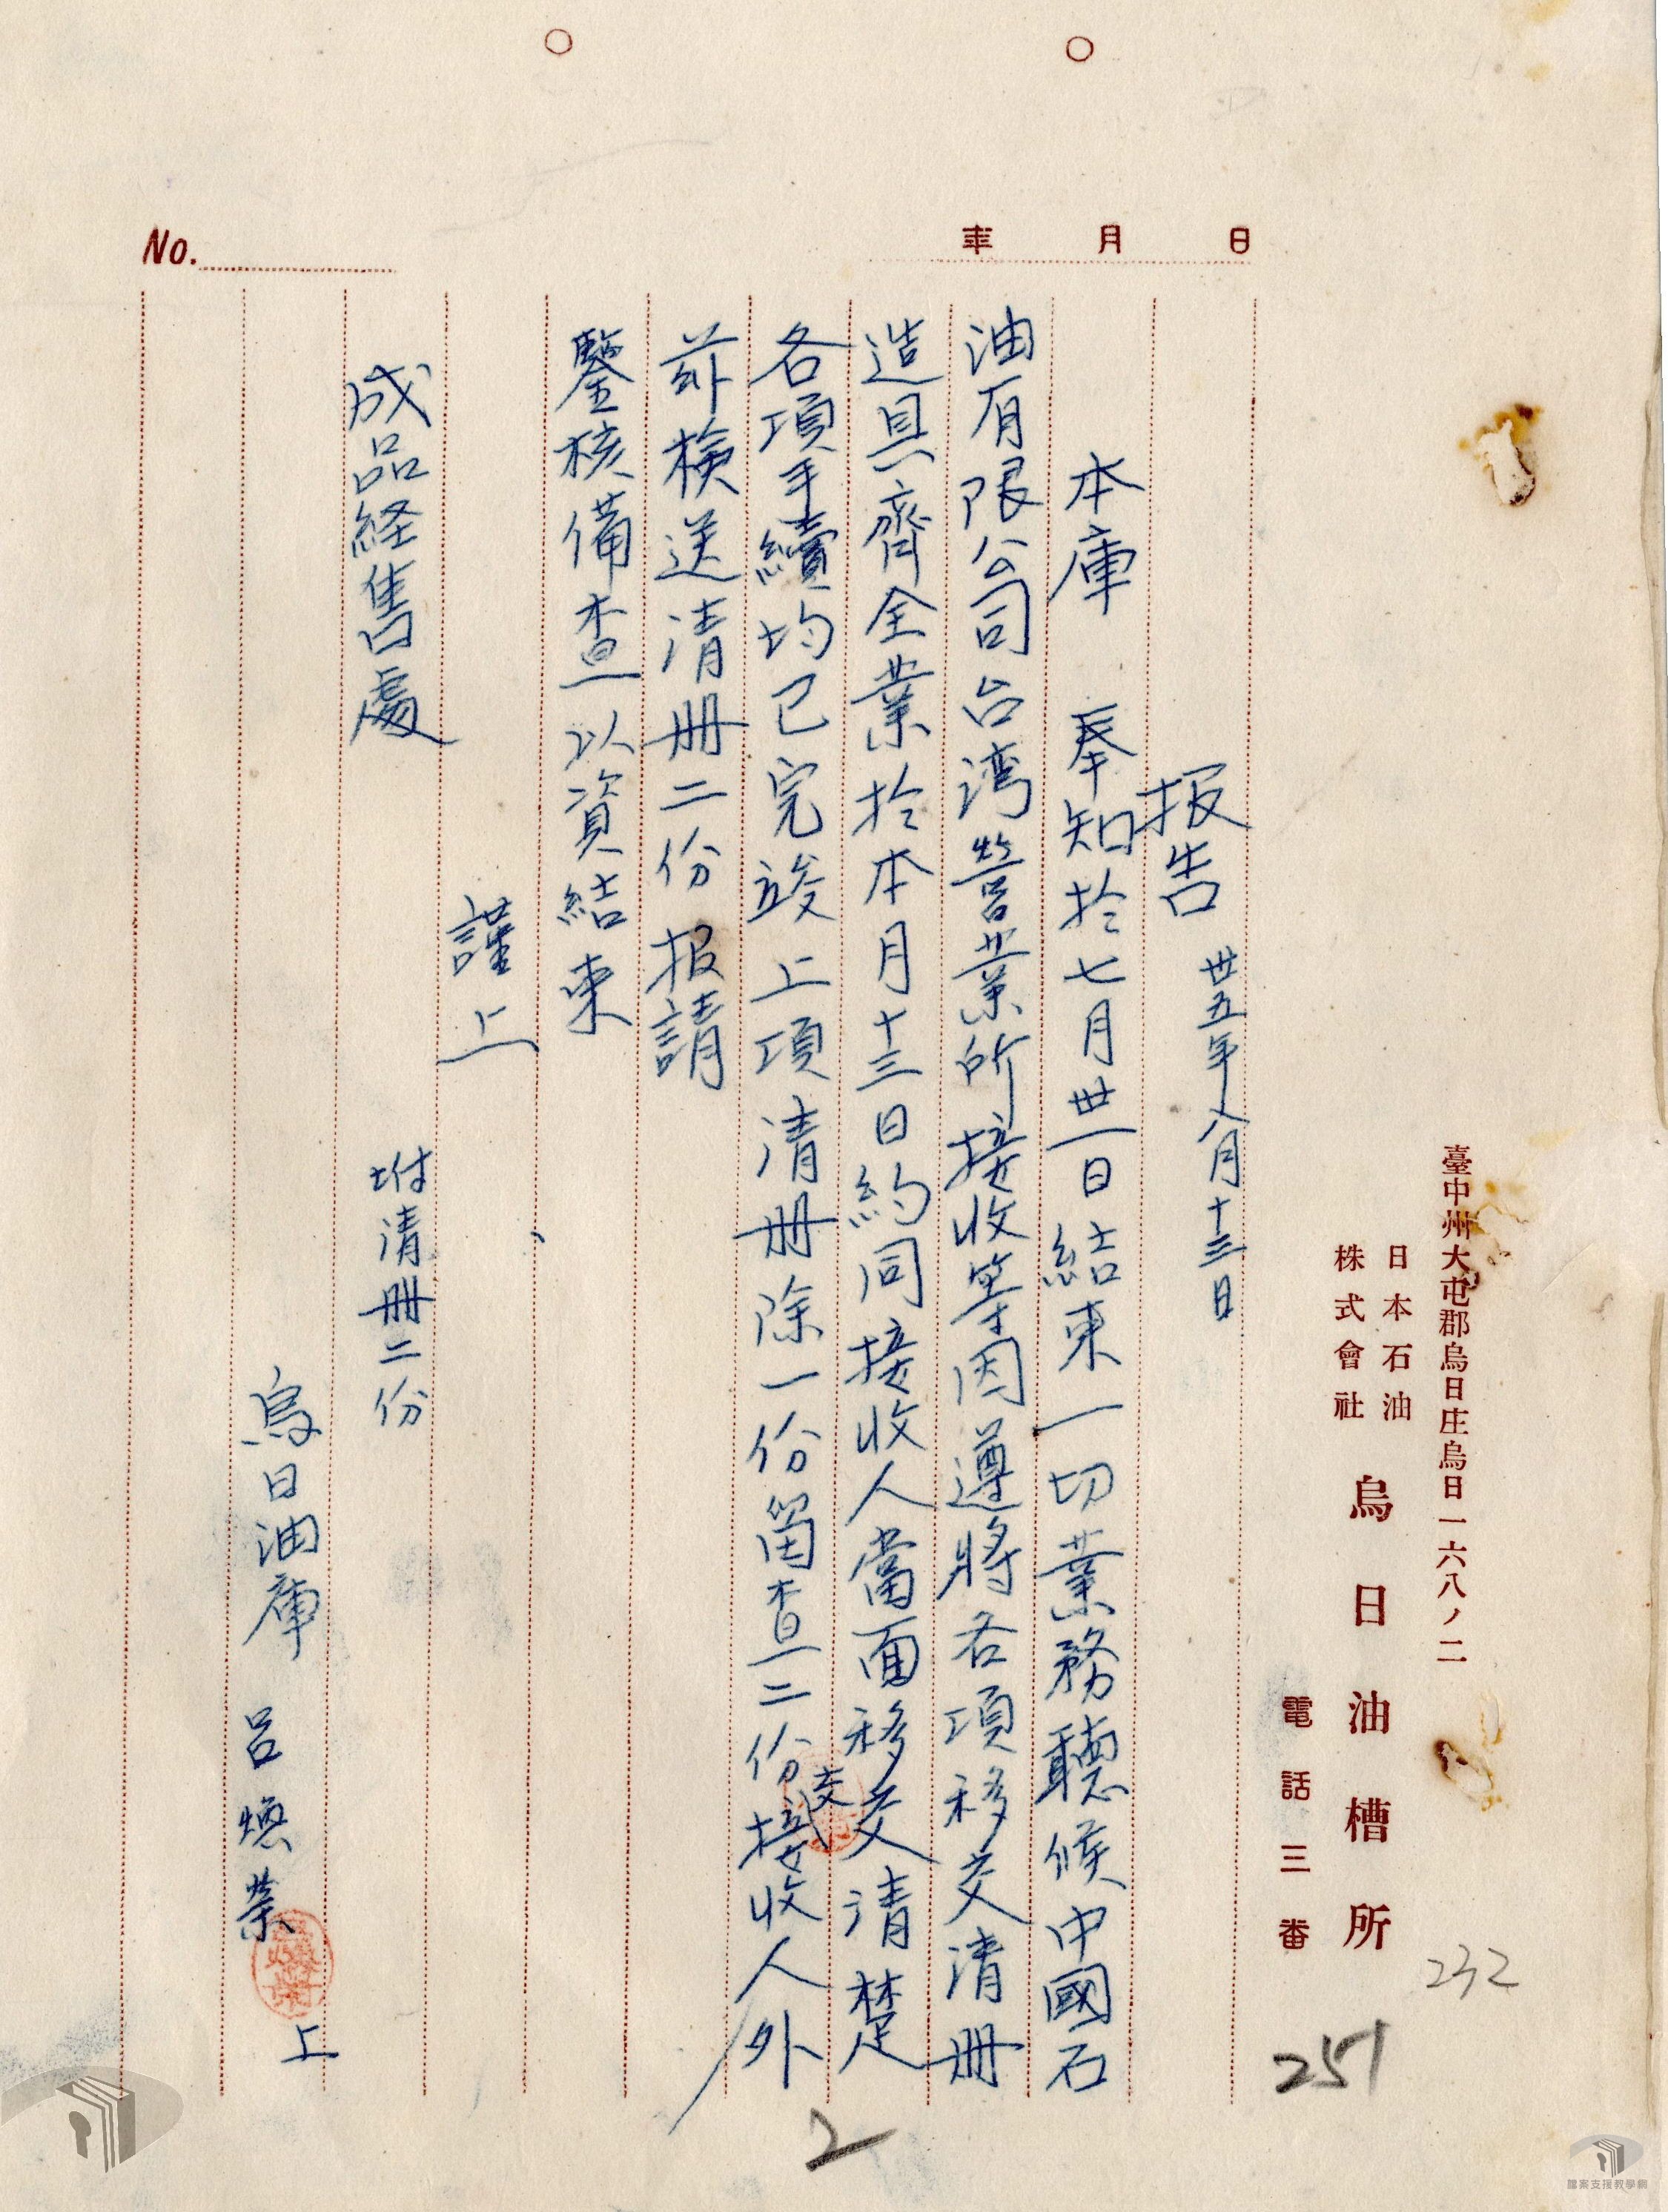 臺中州大屯郡烏日庄烏日一六八ノ二
日本石油
株式會社
烏日油槽所
電話三番
232
251
年 月 日
No.
报告 卅五年八月十三日
本庫 奉知於七月卅一日結束一切業務聽候中國石
油有限公司台湾營業所接收等因遵將各項移交清册
造具齊全業於本月十三日約同接收人當面移交清楚
各項手續均已完竣上項清册除一份留查二份交接收人外
茲檢送清册二份报請
鑒核備查以資結束
謹上
成品経售處
坿清册二份
烏日油庫 呂煥荣 上
2
檔案支援教學網